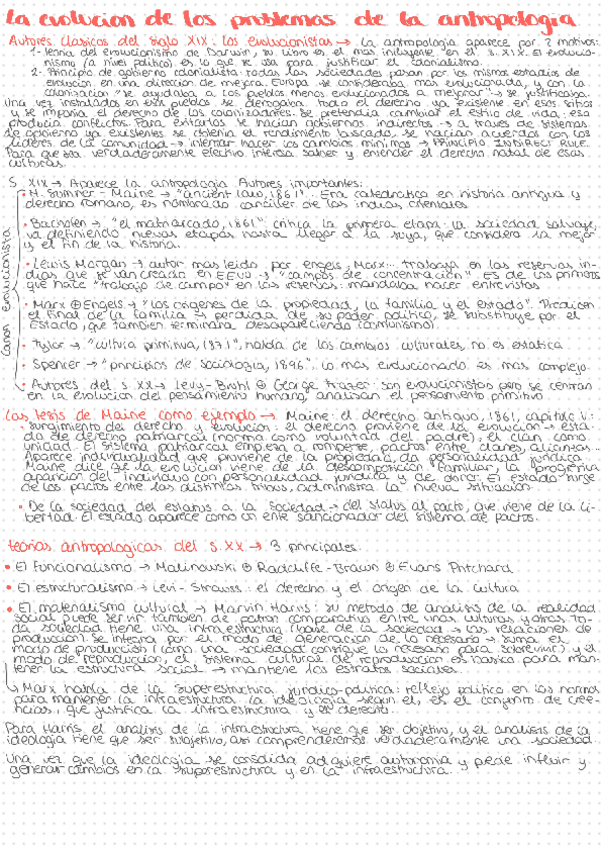 la evolucion de los problemas de la antropologia
Autores clasicos del siglo XIX: los evolucionistas → La antropologia aparece por 2 motivos:
1- teoria del evolucionismo de Darwin, su libro es el mas influyente en el s.XIX. El evolucio-
nismo (a nivel politico) es lo que se usa para justificar el colonialismo.
2- Principio de gobierno colonialista: todas las sociedades pasan por los mismos estadios de
evolucion en una direccion de mejora. Europa se consideraba mas evolucionada, y con la
colonizacion "se ayudaba a los pueblos menos evolucionados a mejorar" → se justificaba.
Una vez instalados en esos pueblos se derogaba todo el derecho ya existente en esos sitios
y se imponia el derecho de los colonizadores. Se pretendia cambiar el estilo de vida: eso
producia conflictos. Para evitarlos se hacian gobiernos indirectos → a traves de sistemas
de gobierno ya existentes se obtenia el rendimiento buscado, se hacian acuerdos con los
lideres de la comunidad → intentar hacer los cambios minimos → PRINCIPIO INDIRECT RULE.
Para que sea verdaderamente efectivo interesa saber y entender el derecho natal de esas
culturas.
S. XIX → Aparece la antropologia. Autores importantes:
Canon evolucionista
• H. Sumner - Maine → "ancient law, 1861". Era catedratico en historia antigua y
derecho romano, es nombrado canciller de las indias orientales.
• Bachofen → "el matriarcado, 1861" critica la primera etapa: la sociedad salvaje,
va definiendo nuevas etapas hasta llegar a la suya, que considera la mejor
y el fin de la historia.
• Lewis Morgan → autor mas leido por engels, Marx... trabaja en las reservas in-
dias que se van creado en EEUU → "campos de concentración". Es de los primeros
que hace "trabajo de campo" en las reservas: mandaba hacer entrevistas
• Marx ⊕ Engels → "los origenes de la propiedad, la familia y el estado". Predicen
el final de la familia y perdida de su poder politico, se substituye por el
Estado, que tambien terminara desapareciendo (comunismo)
• Tylor → "cultura primitiva, 1871", habla de los cambios culturales, no es estatica
• Spencer → "principios de sociologia, 1896". Lo mas evolucionado es mas complejo.
• Autores del s. XX → Levy-Bruhl ⊕ George Frazer: son evolucionistas pero se centran
en la evolucion del pensamiento humano, analisan el pensamiento primitivo
Las tesis de Maine como ejemplo → Maine: el derecho antiguo, 1861, capitulo V.:
• surgimiento del derecho y evolucion: el derecho proviene de la evolucion → esta-
da de derecho patriarcal (norma como voluntad del padre), el clan como
unidad. El sistema patriarcal empieza a romperse, pactos entre clanes, alianzas...
Aparece individualidad que proviene de la propiedad, da personalidad juridica.
Maine dice que la evolucion viene de la descomposicion familiar, la progresiva
aparicion del individuo con personalidad juridica y de honor. El estado surge
de los pactos entre las distintas tribus, administra la nueva situacion.
• De la sociedad del estatus a la sociedad → del status al pacto, que viene de la li-
bertad. El estado aparece como un ente sancionador del sistema de pactos.
teorias antropologicas del s.XX → 3 principales:
• El funcionalismo → Malinowski ⊕ Radcliffe-Brown ⊕ Evans Pritchard
• El estructuralismo → Levi-Strauss: el derecho y el origen de la cultura
• El materialismo cultural → Marvin Harris: su metodo de analisis de la realidad
social puede servir tambien de patron comparativo entre unas culturas y otras. To-
da sociedad tiene una infraestructura (base de la sociedad → las relaciones de
produccion) se integra por el modo de generacion de lo necesario → suma el
modo de produccion (como una sociedad consigue lo necesario para sobrevivir) y el
modo de reproduccion, el sistema cultural de reproduccion es basico para man-
tener la estructura social → mantiene los estratos sociales.
Marx habla de la superestructura juridico-politica: reflejo politico en las normas
para mantener la infraestructura. La ideologia segun el, es el conjunto de cree-
ncias, que justifica la infraestructura y el derecho.
Para Harris el analisis de la infraestructura tiene que ser objetivo, y el analisis de la
ideologia tiene que ser subjetivo, asi comprenderemos verdaderamente una sociedad.
Una vez que la ideologia se consolida adquiere autonomia y puede influir y
generar cambios en la superestructura y en la infraestructura.